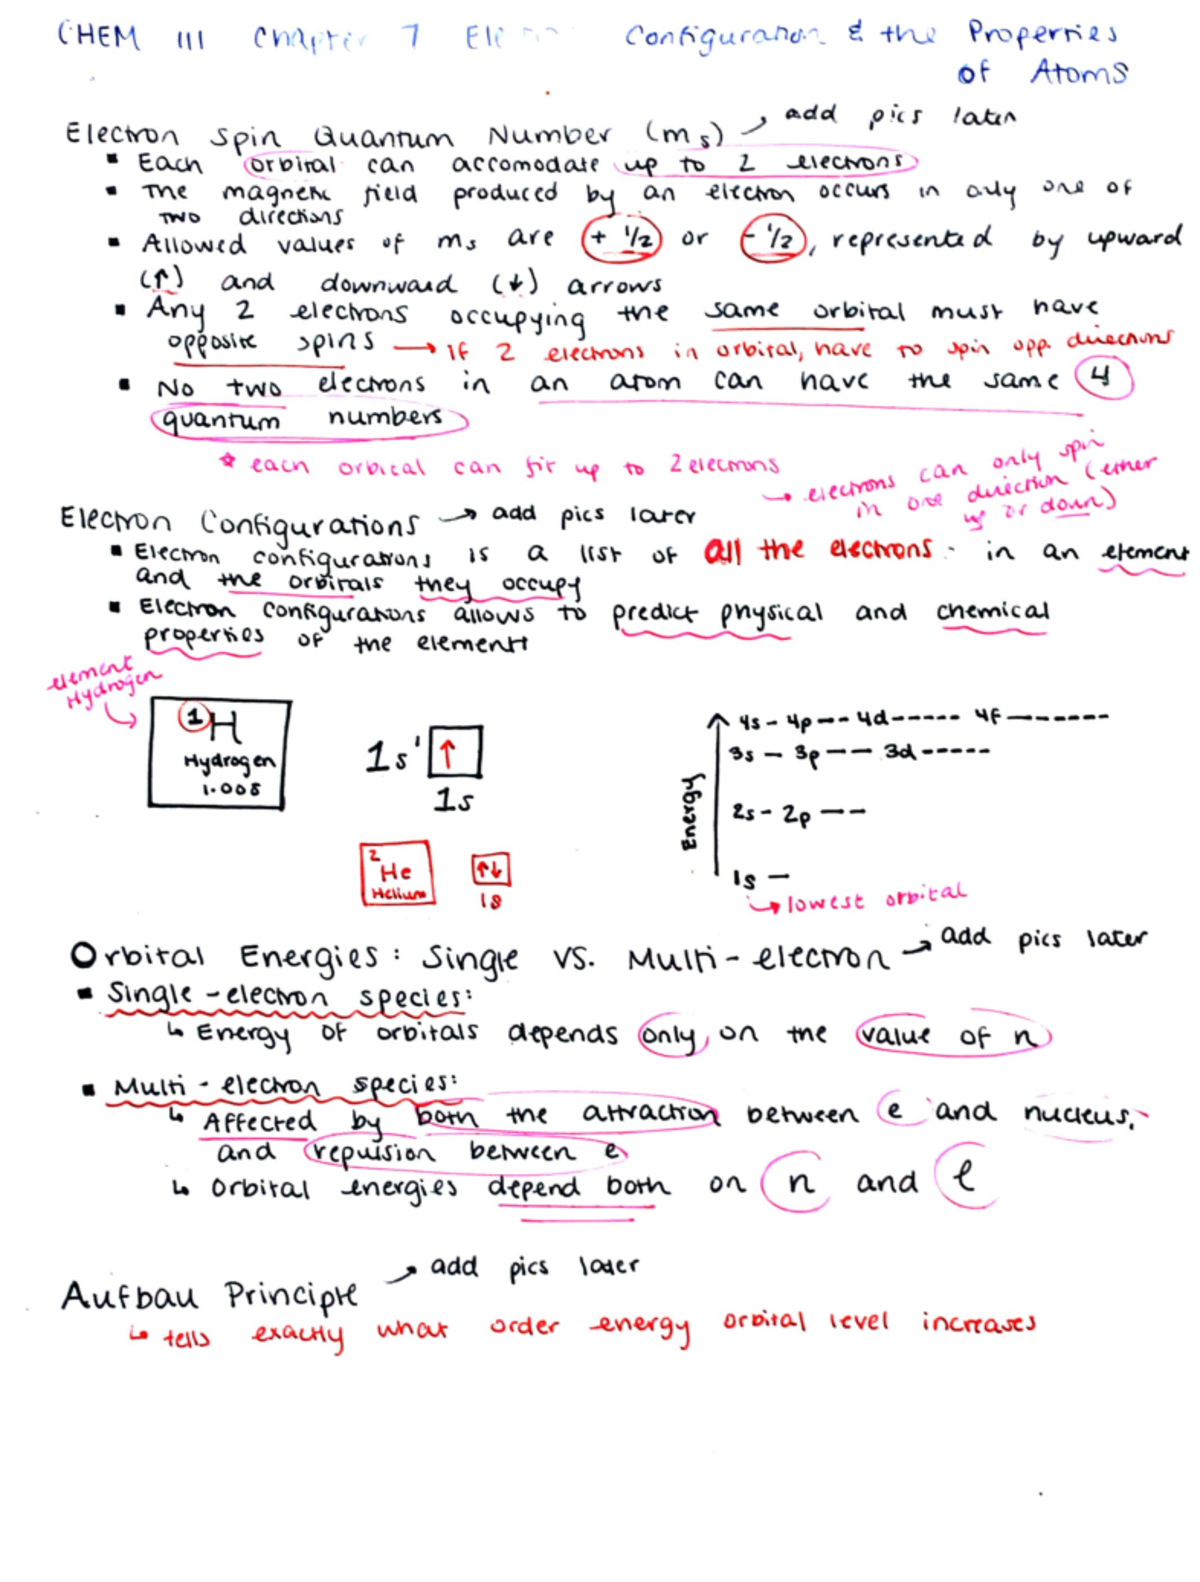 CHEM 111 Chapter 7 Configuration & the Properties
of Atoms
Electron Spin Quantum Number (ms) → add pics later
▪ Each orbital can accomodate up to 2 electrons
▪ The magnetic field produced by an electron occurs in only one of
two directions
▪ Allowed values of ms are + 1/2 or - 1/2, represented by upward
(↑) and downward (↓) arrows
▪ Any 2 electrons occupying the same orbital must have
opposite spins → if 2 electrons in orbital, have to spin opp. directions
▪ No two electrons in an atom can have the same 4
quantum numbers
* each orbital can fit up to 2 electrons
→ electrons can only spin
in one direction (either
up or down)
Electron Configurations → add pics later
▪ Electron configurations is a list of all the electrons in an element
and the orbitals they occupy
▪ Electron configurations allows to predict physical and chemical
properties of the element
element
Hydrogen
1 H
Hydrogen
1.008
1s¹ ↑
1s
2
He
Helium
↑↓
1s
Energy
4s - 4p --- 4d ----- 4f -------
3s - 3p --- 3d -----
2s - 2p ---
1s -
→ lowest orbital
Orbital Energies: Single vs. Multi-electron → add pics later
▪ Single-electron species:
↳ Energy of orbitals depends only on the value of n
▪ Multi-electron species:
↳ Affected by both the attraction between e and nucleus,
and repulsion between e
↳ Orbital energies depend both on n and ℓ
Aufbau Principle → add pics later
↳ tells exactly what order energy orbital level increases